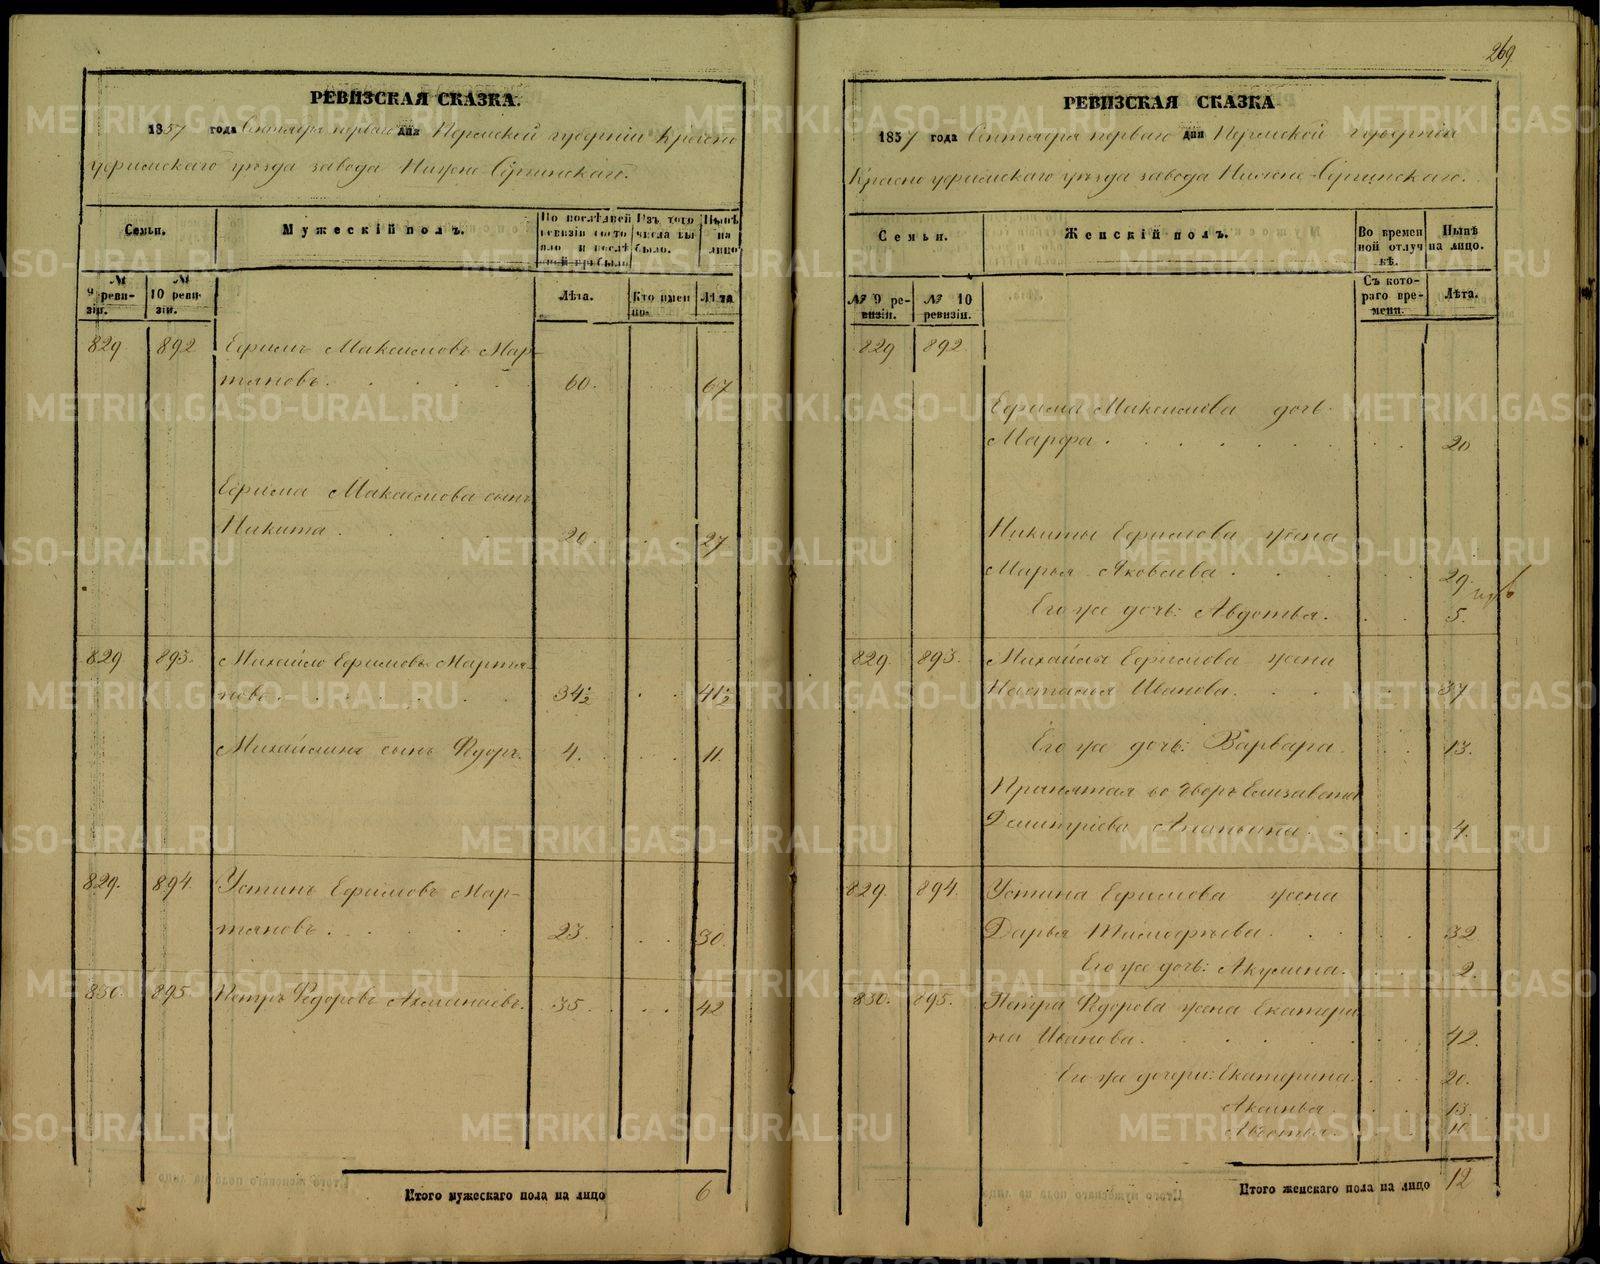 РЕВИЗСКАЯ СКАЗКА.
1857 года Сентября перваго дня Пермской губерніи Красно
уфимскаго уѣзда завода Нижне-Сергинскаго.
Семьи.
Мужескій полъ.
По послѣдней ревизіи состояло и послѣ оной прибыло
Изъ того числа выбыло.
Нынѣ на лицо
№ 9 ревизіи.
№ 10 ревизіи.
Лѣта.
Кто именно.
Лѣта
829 892 Ефимъ Максимовъ Мар-
тяновъ. 60. 67
Ефима Максимова сынъ
Никита. 20. 27
829 893. Михайло Ефимовъ Мартя-
новъ. 34½ 41½
Михайлинъ сынъ Ѳедоръ. 4. 11.
829. 894. Устинъ Ефимовъ Мар-
тяновъ. 23. 30.
830. 895. Петръ Ѳедоровъ 35. 42
Итого мужескаго пола на лицо 6
269
РЕВИЗСКАЯ СКАЗКА
1857 года Сентября перваго дня Пермской губерніи
Красноуфимскаго уѣзда завода Нижне-Сергинскаго.
Семьи.
Женскій полъ.
Во временной отлучкѣ.
Нынѣ на лицо.
№ 9 ревизіи.
№ 10 ревизіи.
Съ котораго времени.
Лѣта.
829 892
Ефима Максимова дочь
Марфа. 20
Никиты Ефимова жена
Марья Яковлева. 29.
Его же дочь: Авдотья. 5.
829. 893. Михайлы Ефимова жена
Настасья Иванова. 37
Его же дочь: Варвара. 13.
Принятая во дворъ Елизавета
Дмитріева Ананьина. 4.
829. 894. Устина Ефимова жена
Дарья Тимофѣева. 32
Его же дочь: Акулина. 2.
830. 895. Петра Ѳедорова жена Екатери
на Иванова. 42.
Его же дочери: Екатерина. 20.
Аксинья 13.
Авдотья. 10
Итого женскаго пола на лицо 12
METRIKI.GASO-URAL.RU